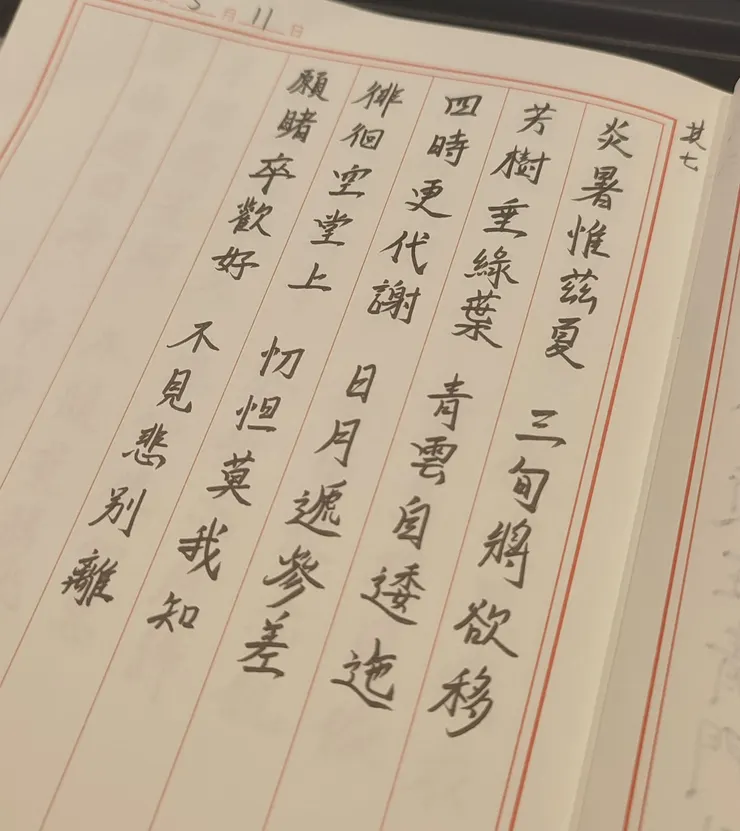 5月11日
其七
炎暑惟茲夏 三旬將欲移
芳樹垂綠葉 青雲自逶迤
四時更代謝 日月遞參差
徘徊空堂上 忉怛莫我知
願睹卒歡好 不見悲別離